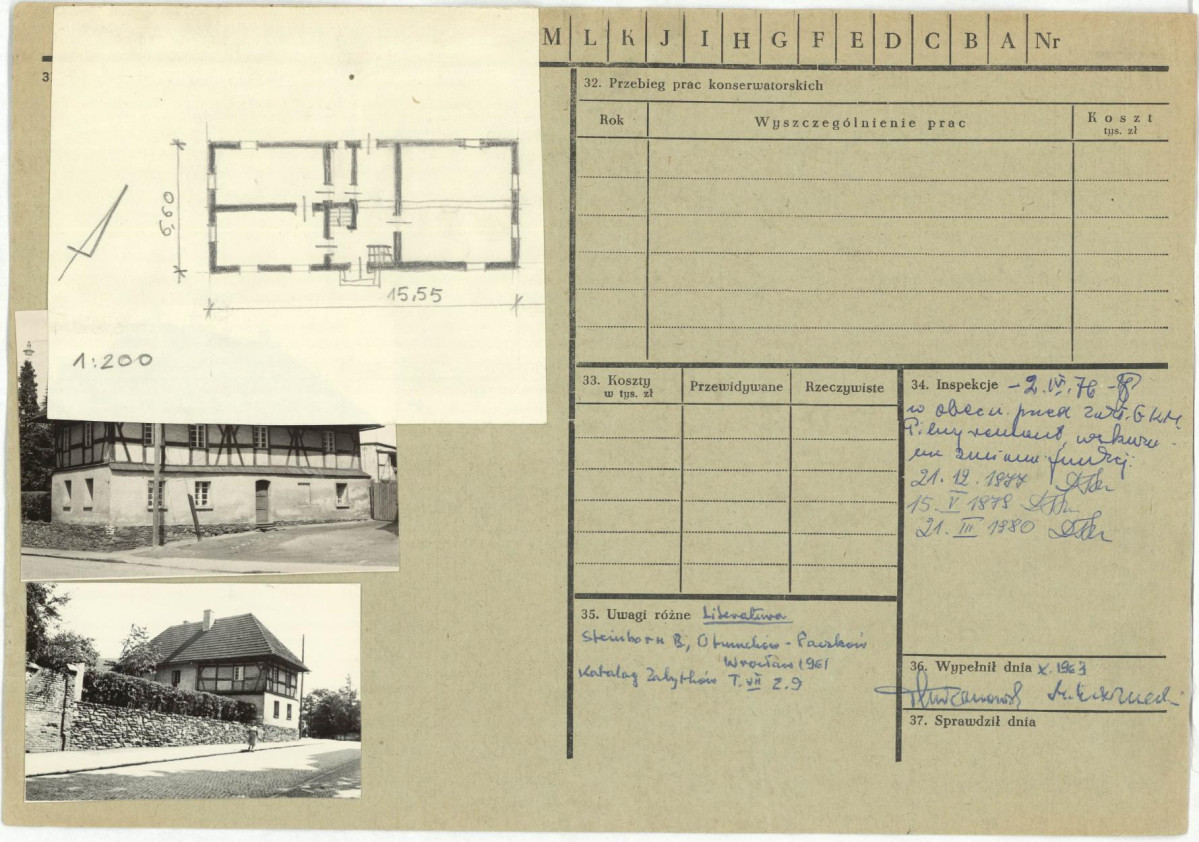 M L K J I H G F E D C B A Nr
3
32. Przebieg prac konserwatorskich
Rok
Wyszczególnienie prac
Koszt
tys. zł
6,60
15,55
1:200
33. Koszty
w tys. zł
Przewidywane
Rzeczywiste
34. Inspekcje - 2.IV.76 -
w obecn. przed
Pilny remont,
zmiana funkcji.
21.12.1977
15.V 1979
21.III 1980
35. Uwagi różne Literatura
Steinborn B, Otmuchów - Paczków
Wrocław 1961
Katalog Zabytków T.VII z.9
36. Wypełnił dnia X.1963
37. Sprawdził dnia